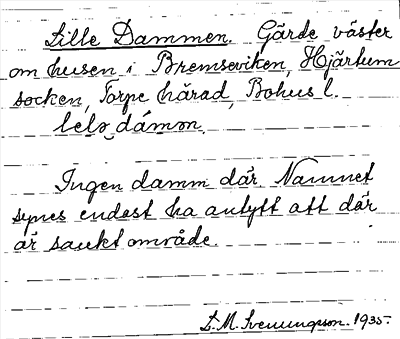 Lille Dammen. Gärde väster
om husen i Bremseviken, Hjärtum
socken, Torpe härad, Bohus l.
lelə dámən.
Ingen damm där. Namnet
synes endast ha antytt att där
är sankt område.
S. M. Svenungsson. 1935.